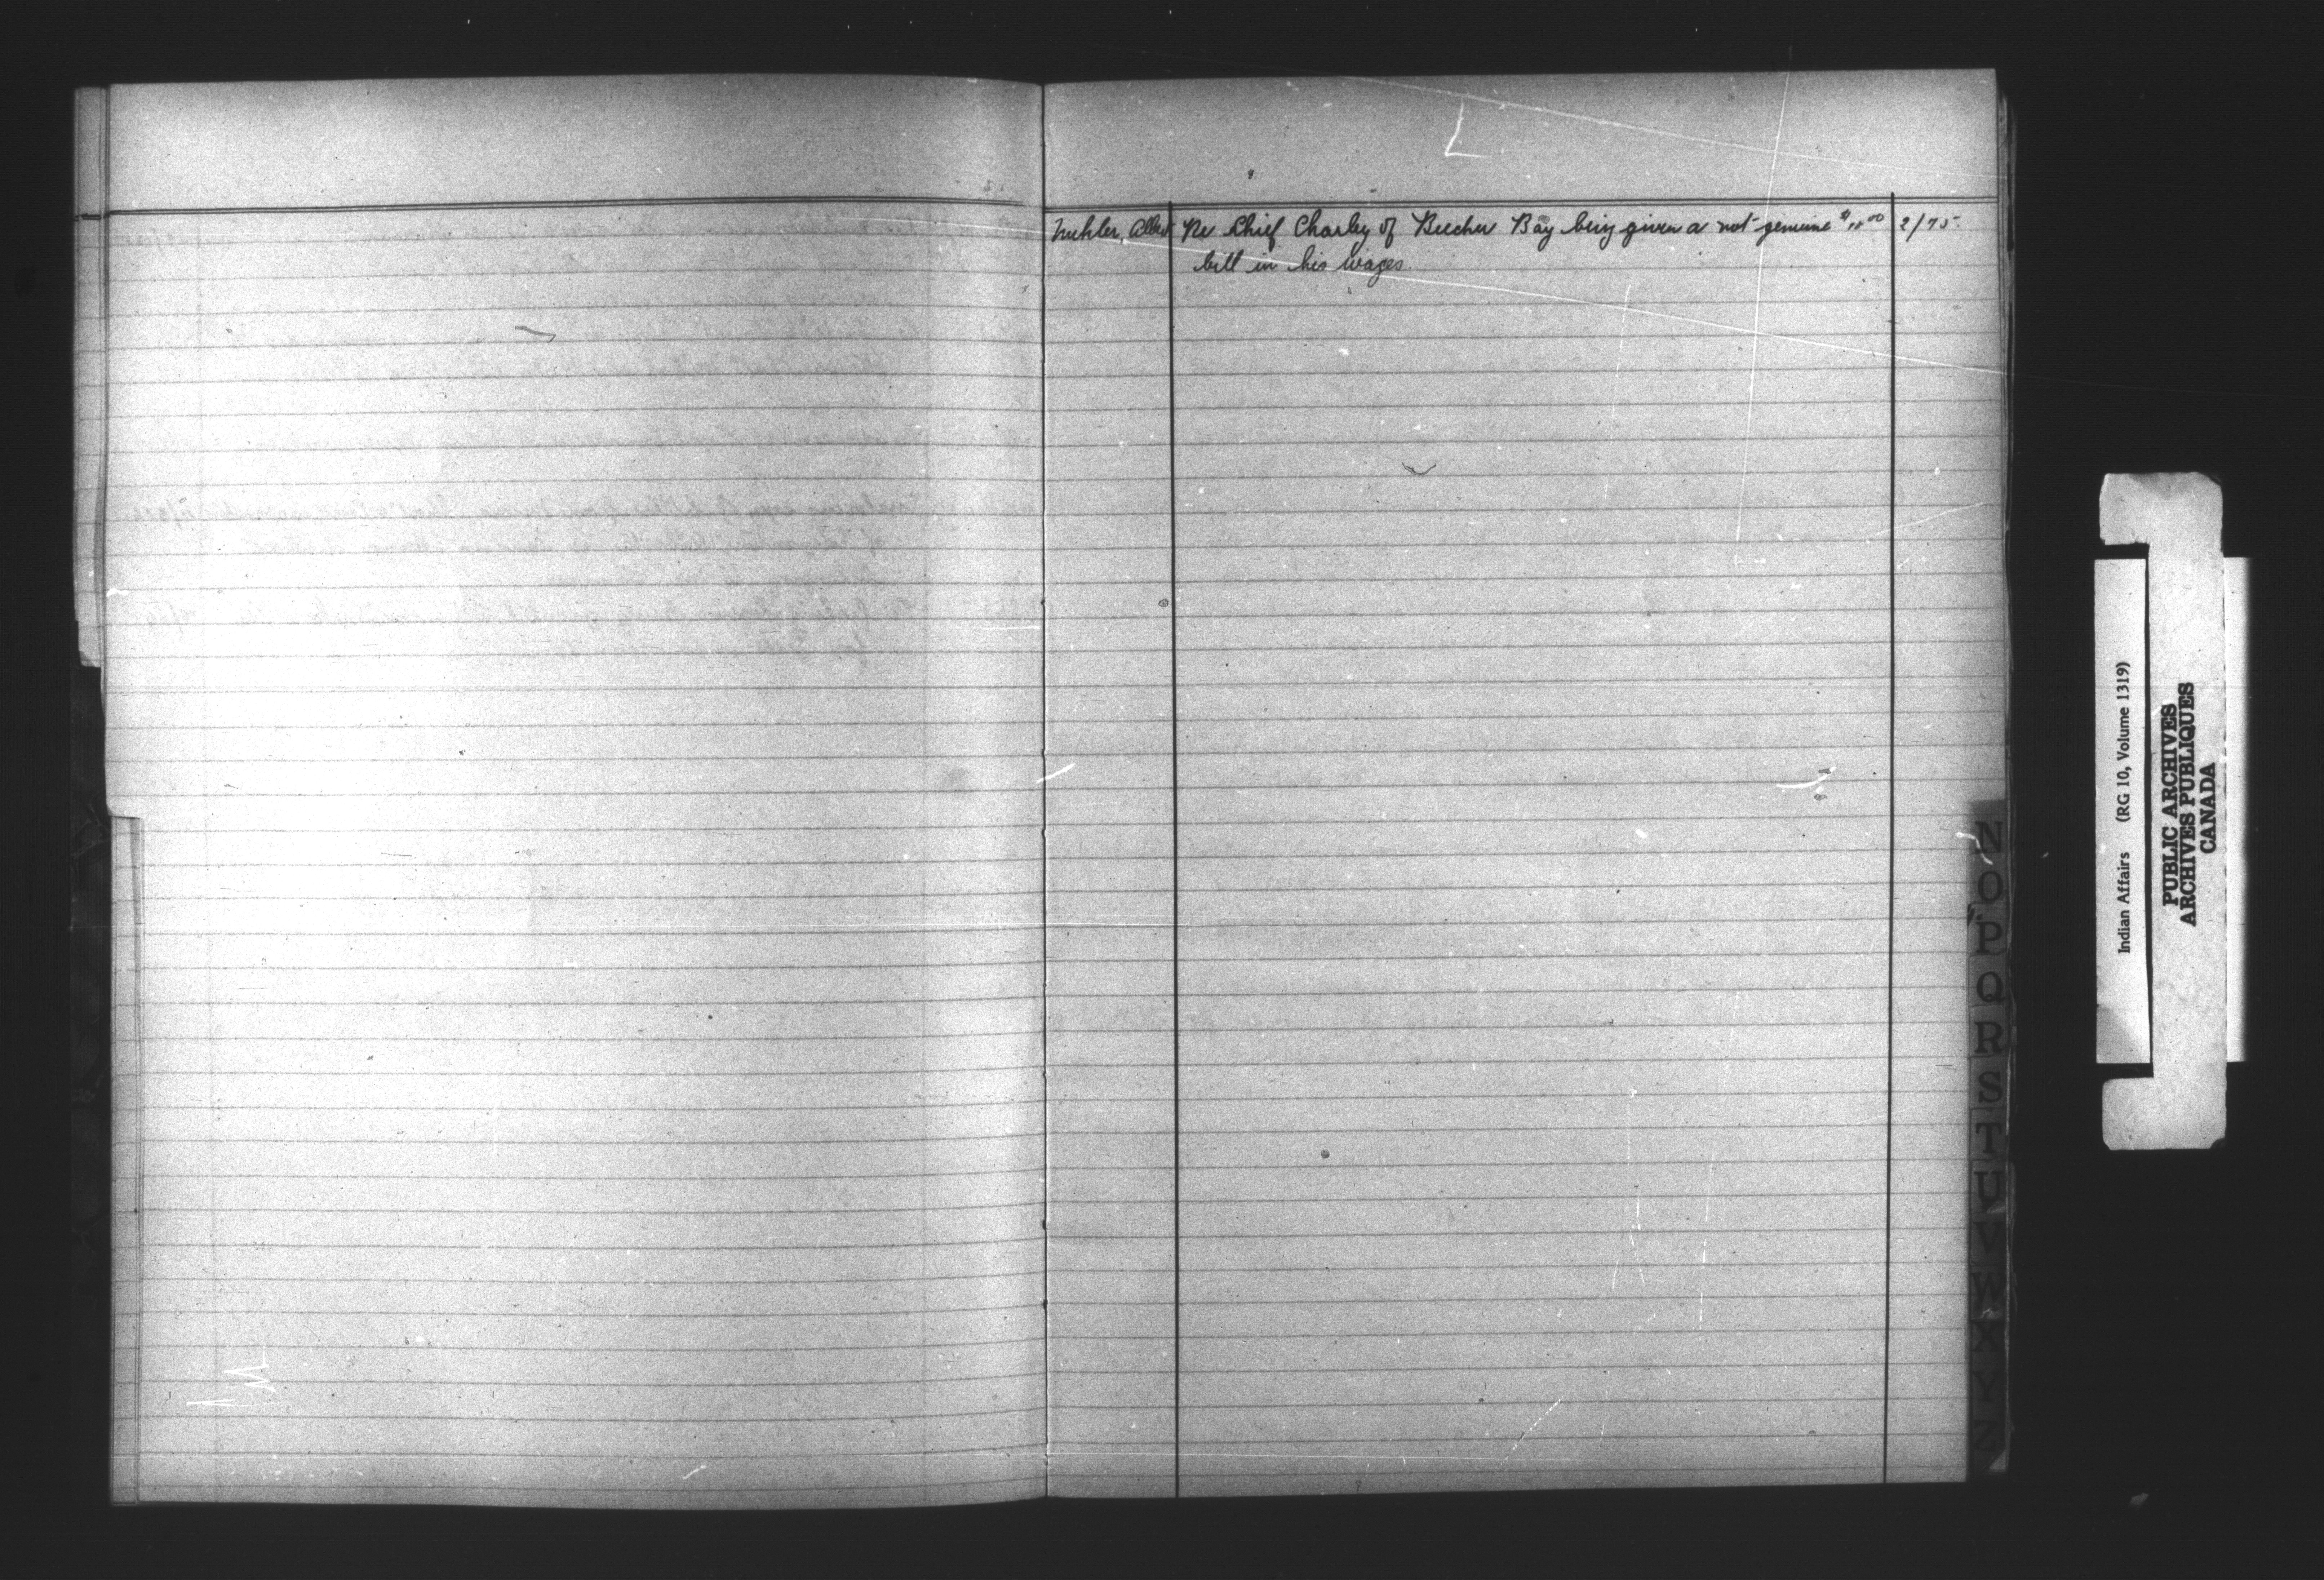 Re Chief Charley of Beecher Bay being given a not genuine $ 2/75
bill in his wages.
N
O
P
Q
R
S
T
U
V
W
X
Y
Z
Indian Affairs (RG 10, Volume 1319)
PUBLIC ARCHIVES
ARCHIVES PUBLIQUES
CANADA